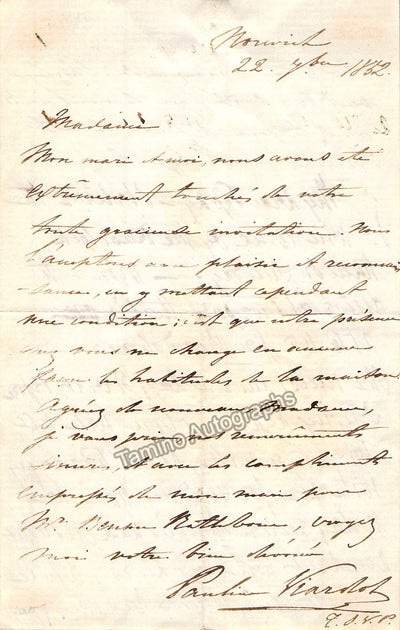 Norwich
22 7bre 1852.
Madame
Mon mari et moi, nous avons été
extrêmement touchés de votre
toute gracieuse invitation. Nous
l'acceptons avec plaisir et reconnais
-sance, en y mettant cependant
une condition; c'est que notre présence
chez vous ne change en aucune
façon les habitudes de la maison.
Agréez de nouveau, Madame,
je vous prie, mes remerciments
sincères, et avec les compliments
empressés de mon mari pour
Mr. Benson Rathbone, croyez
moi votre bien dévouée
Pauline Viardot
T. S. V. P.
Tamino Autographs